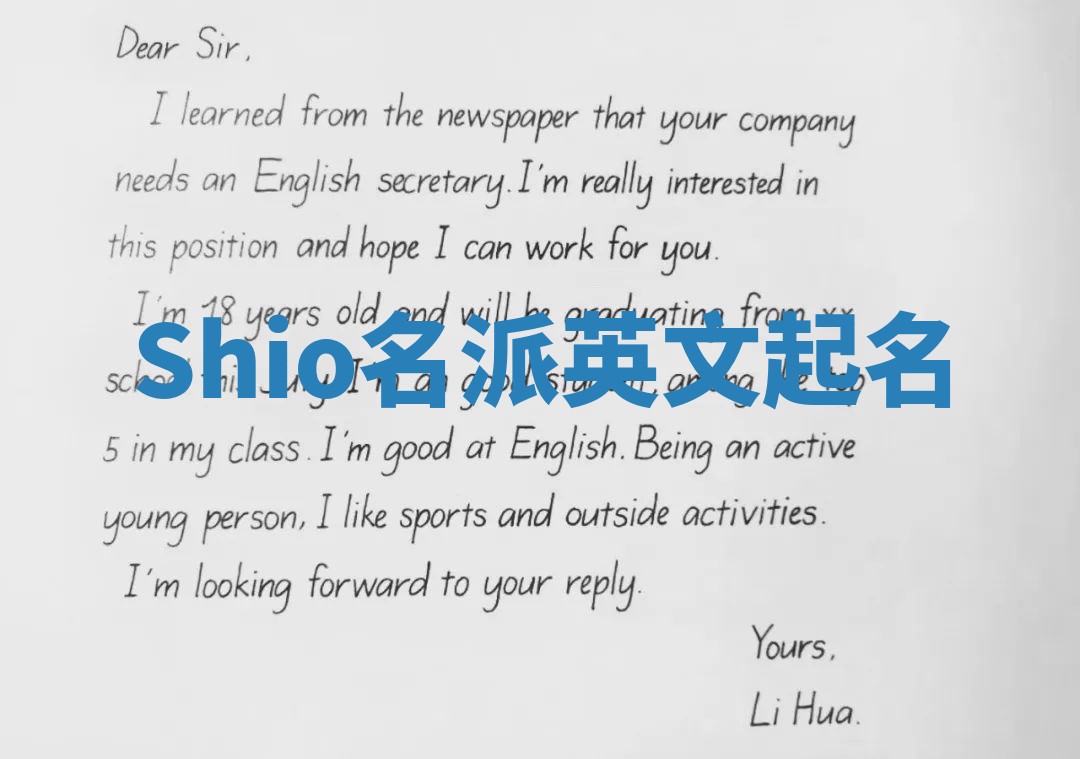 Dear Sir,
I learned from the newspaper that your company
needs an English secretary. I'm really interested in
this position and hope I can work for you.
I'm 18 years old and will be graduating from xx
Shio名派英文起名
school this July. I'm a good student, among the top
5 in my class. I'm good at English. Being an active
young person, I like sports and outside activities.
I'm looking forward to your reply.
Yours,
Li Hua.